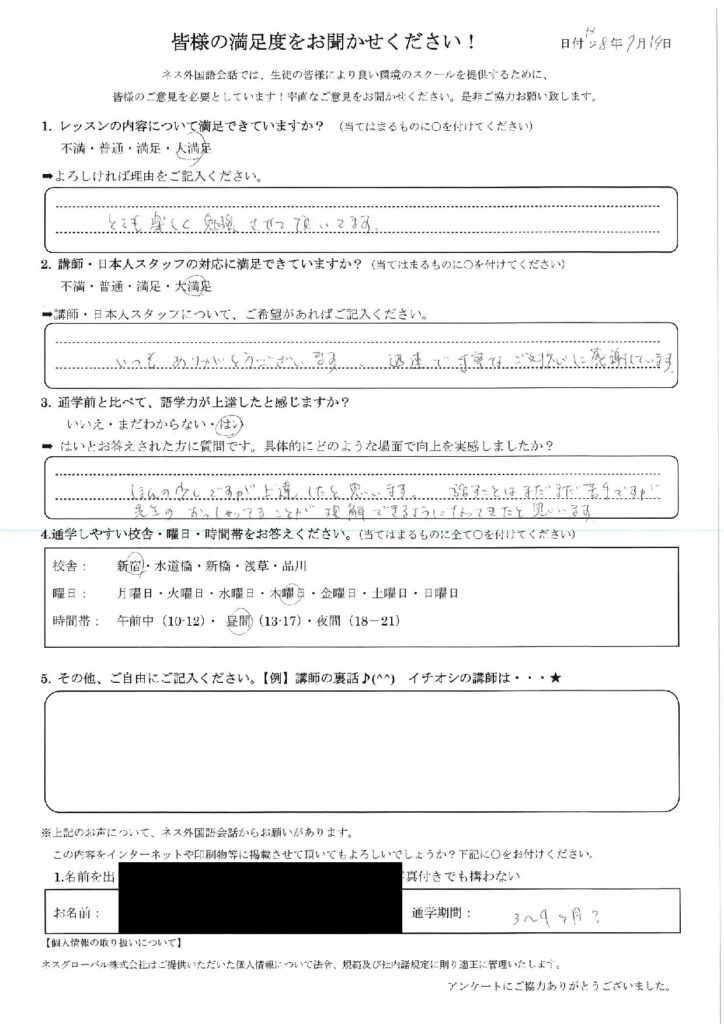 皆様の満足度をお聞かせください！
日付 H28年9月14日
ネス外国語会話では、生徒の皆様により良い環境のスクールを提供するために、
皆様のご意見を必要としています！率直なご意見をお聞かせください。是非ご協力お願い致します。
1. レッスンの内容について満足できていますか？（当てはまるものに○を付けてください）
不満・普通・満足・大満足
➡よろしければ理由をご記入ください。
とても楽しく勉強させて頂いてます。
2. 講師・日本人スタッフの対応に満足できていますか？（当てはまるものに○を付けてください）
不満・普通・満足・大満足
➡講師・日本人スタッフについて、ご希望があればご記入ください。
いつもありがとうございます。迅速で丁寧なご対応に感謝しています
3. 通学前と比べて、語学力が上達したと感じますか？
いいえ・まだわからない・はい
➡ はいとお答えされた方に質問です。具体的にどのような場面で向上を実感しましたか？
ほんの少しですが上達したと思います。話すことはまだまだ苦手ですが
先生のおっしゃってることが理解できるようになってきたと思います
4.通学しやすい校舎・曜日・時間帯をお答えください。(当てはまるものに全て○を付けてください）
校舎： 新宿・水道橋・新橋・浅草・品川
曜日： 月曜日・火曜日・水曜日・木曜日・金曜日・土曜日・日曜日
時間帯： 午前中（10-12）・ 昼間（13-17）・夜間（18－21）
5. その他、ご自由にご記入ください。【例】講師の裏話♪(^^)　イチオシの講師は・・・★
※上記のお声について、ネス外国語会話からお願いがあります。
この内容をインターネットや印刷物等に掲載させて頂いてもよろしいでしょうか？下記に○をお付けください。
1.名前を出 真付きでも構わない
お名前： 通学期間： 3〜4ヶ月？
【個人情報の取り扱いについて】
ネスグローバル株式会社はご提供いただいた個人情報について法令、規範及び社内諸規定に則り適正に管理いたします。
アンケートにご協力ありがとうございました。